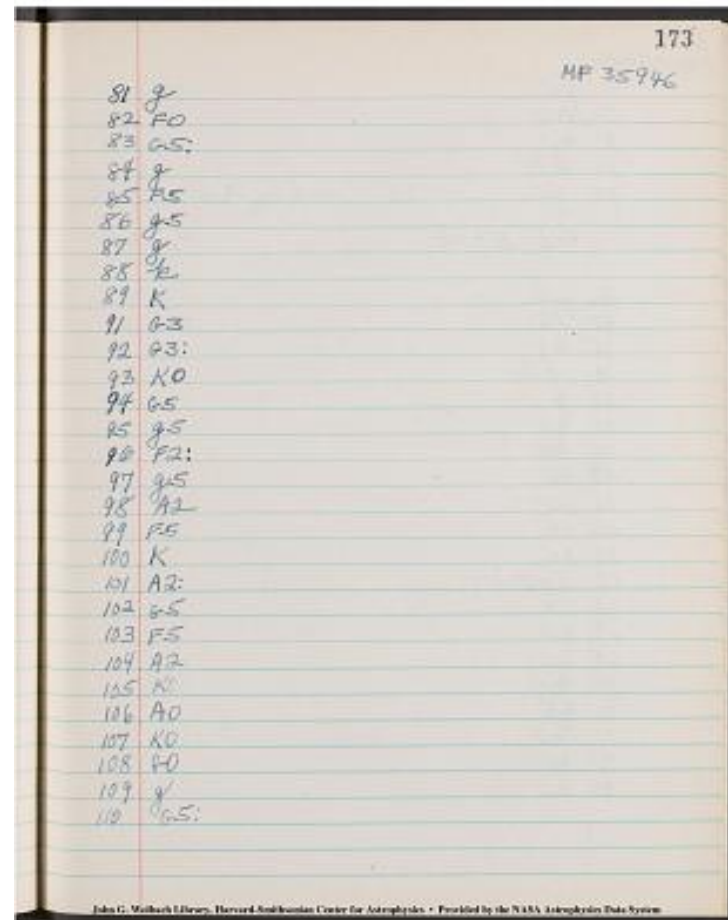 173
MF 35946
81 g
82 F0
83 G5:
84 g
85 F5
86 g5
87 g
88 k
89 K
91 G3
92 G3:
93 K0
94 G5
95 g5
96 F2:
97 g5
98 A2
99 F5
100 K
101 A2:
102 G5
103 F5
104 A2
105 K
106 A0
107 K0
108
109 g
110 G5:
John G. Wolbach Library, Harvard-Smithsonian Center for Astrophysics • Provided by the NASA Astrophysics Data System